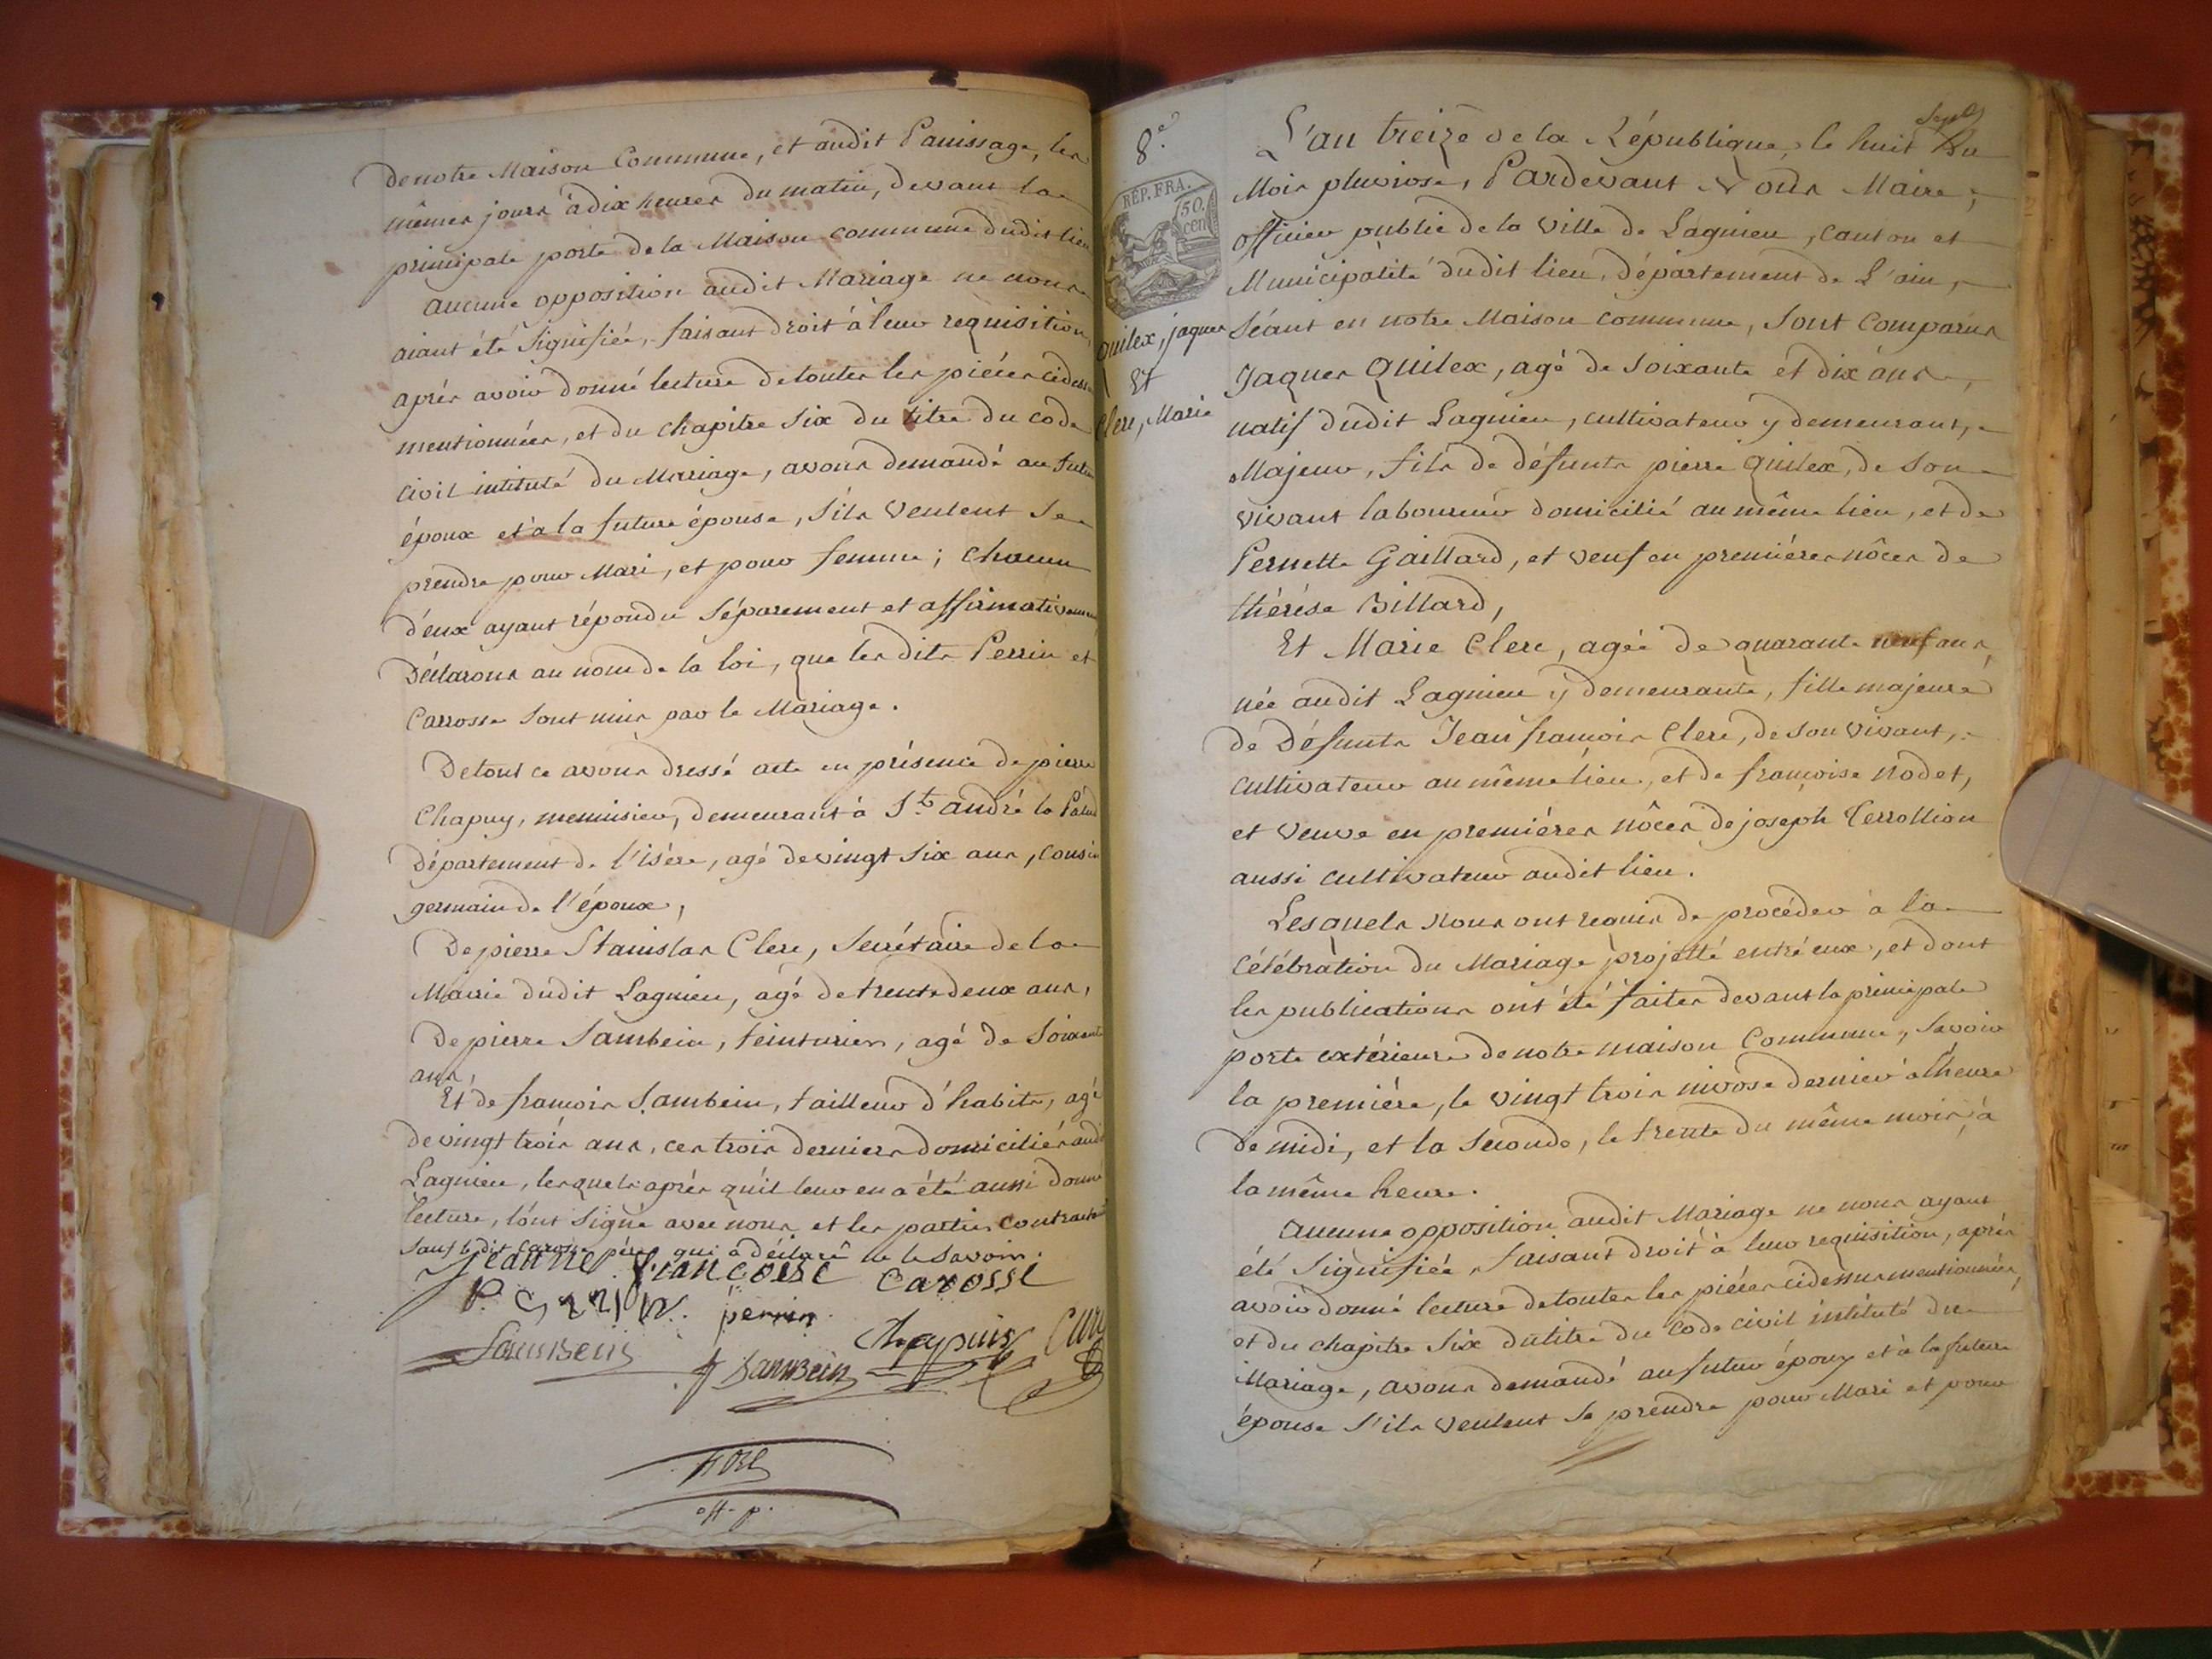 De notre Maison Commune, et audit Panissage, les
mêmes jours à dix heures du matin, devant la
principale porte de la Maison commune dudit lieu
aucune opposition audit Mariage ne nous
aiant été Signifiée, faisant droit à leur requisition,
après avoir donné lecture de toutes les pièces cidessus
mentionnées, et du chapitre Six du titre du code
civil intitulé du Mariage, avons demandé au futur
époux et à la future épouse, S'ils veulent Se
prendre pour Mari, et pour femme; chacun
d'eux ayant répondu Séparement et affirmativement,
Déclarons au nom de la loi, que les dits Perrin et
Carrosse Sont unis par le Mariage.
De tout ce avons dressé acte en présence de pierre
Chapuy, menuisier, demeurant à St. andré la Palud
Département de l'isère, agé de vingt Six ans, cousin
germain de l'époux,
De pierre Stanislas Clerc, Secrétaire de la
Mairie dudit Lagnieu, agé de trente deux ans,
De pierre Sambein, teinturier, agé de Soixante
ans,
Et de françois Sambein, tailleur d'habits, agé
de vingt trois ans, ces trois derniers domiciliés audit
Lagnieu, lesquels après qu'il leur en a été aussi donné
lecture, l'ont Signé avec nous et les parties contractantes
Sauf ledit Carosse père qui a déclaré ne le Savoir.
jeanne françoise Carosse
P. perrin
Sambein f Sambein Chapuis
off. p.
8.e
REP. FRA.
50. cen
quilex, jaques
Et
Clerc, Marie
Sept
L'an treize de la République, le huit du
Mois pluviose, Pardevant Nous Maire,
officier public de la Ville de Lagnieu, canton et
Municipalité dudit lieu, département de L'ain,
Séant en notre Maison commune, Sont Comparus
Jaques Quilex, agé de Soixante et dix ans,
natif dudit Lagnieu, cultivateur y demeurant,
Majeur, fils de défunts pierre Quilex, de Son
vivant laboureur domicilié au même lieu, et de
Pernette Gaillard, et veuf en premières nôces de
thérèse Billard,
Et Marie Clerc, agée de quarante neuf ans,
née audit Lagnieu y demeurante, fille majeure
de Défunts Jean françois Clerc, de son vivant,
cultivateur au même lieu, et de françoise Nodet,
et veuve en premières nôces de joseph Terrollion
aussi cultivateur audit lieu.
Lesquels Nous ont requis de procéder à la
Célébration du Mariage projetté entré eux, et dont
les publications ont été faites devant la principale
porte extérieure de notre maison Commune, Savoir
la première, le vingt trois nivose dernier à l'heure
de midi, et la Seconde, le trente du même mois, à
la même heure.
Aucune opposition audit Mariage ne nous ayant
été Signifiée, faisant droit à leur requisition, après
avoir donné lecture de toutes les pièces cidessus mentionnées,
et du chapitre Six du titre du Code civil intitulé du
Mariage, avons demandé au futur époux et à la future
épouse S'ils veulent Se prendre pour Mari et pour